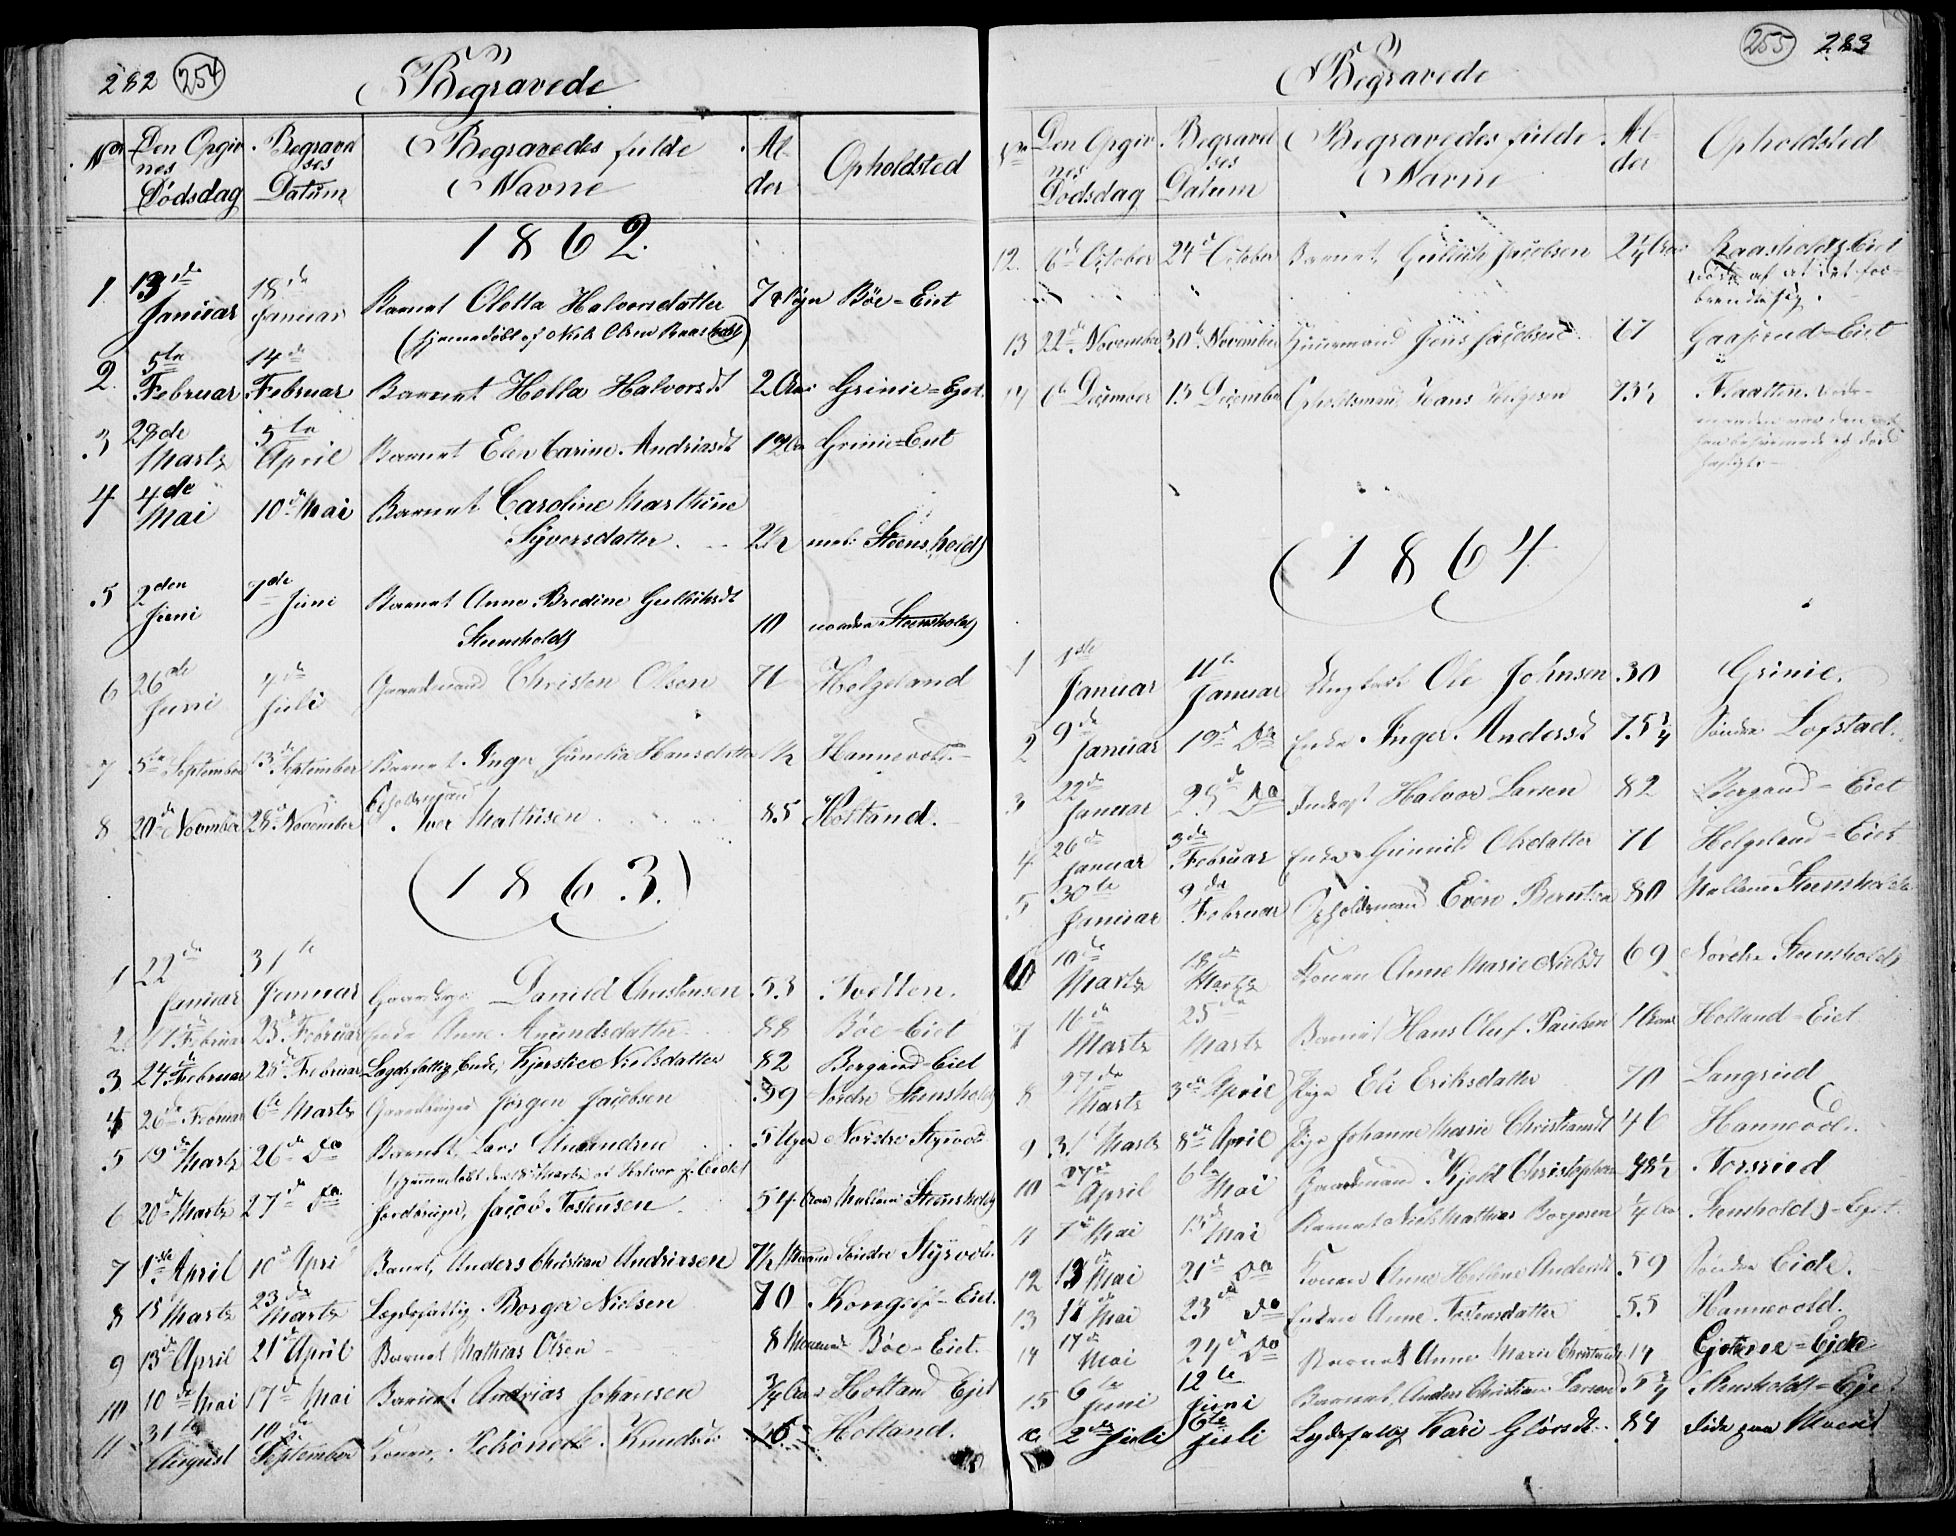 282 (254)
Begravede
No Den Opgivnes Dødsdag Begravelses Datum Begravedes fulde Navne Alder Opholdsted
1862.
1. 13de Januar 18de Januar Barnet Oletta Halvorsdatter 7 Bøe-Eiet
(hjemmedøbt af Nils Olsen
2. 5te Februar 14de Februar Barnet Hella Halvorsdt 2 Aar Grinie-Ejet.
3 28de Martz 5te April Barnet Elen Carine Andriasdt Grinie-Eiet
4 4de Mai 10de Mai Barnet Caroline Marthine
Syversdatter 2½ mel: Steensholdt
5 2den Juni 7de Juni Barnet Anne Bredine Gulliksdt
Steensholdt 10 nordre Steensholdt
6 26de Juni 4de Juli Gaardmand Christen Olsen 71 Helgeland
7 5te September 13de September Barnet Inger Gunelia Hansdatter ½ Hannevold.
8 20de November 28de November Opholdsmand
Iver Mathisen 85 Holtand.
(1863.)
1 22de Januar 31te Januar Daniel Christensen 53 Tvetten.
2. 17de Februar 23de Februar Enke Anne Amundsdatter 88 Bøe-Eiet
3 24de Februar 28de Februar Lægdsfattig Enke, Kjerstie Nielsdatter 82 Bergaard-Eiet
4 26de Februar 6te Martz Jørgen Jacobsen 39 Nordre Steensholdt
5 19de Martz 26de Do Barnet Lars 5 Uger Nordre Styrvold
(hjemmedøbt den 18de Martz af Halvor J. Eidet
6 20de Martz 27de Do Jacob Tostensen 54 Aar Mellem Steensholdt
7 1ste April 10de April Barnet, Anders Christian Andriasen 7½ Maaned Søndre Styrvold.
8 15de Martz 23de Martz Lægdsfattig Borger Nielsen 70 Kongelf-Eiet.
9 13de April 21de April Barnet Mathias Olsen 8 Maaneder Bøe-Eiet.
10 10de Mai 17de Mai Barnet Andrias Johansen ¾ Aar Holtand Ejet
11 31te August 10de September Konen, Knudsdt. Holtand.
(255) 283
Begravede
Nr Den Opgivnes Dødsdag Begravelses Datum Begravedes fulde Navne Alder Opholdsted
12. 6te October 24de October Barnet Gullich Jacobsen 2¼ Aar Raasholdt-Eiet
døde af at det forbrendte sig.
13 22de November 30te November Huusmand Jens Jacobsen 67 Gaasrud-Eiet
14 6te December 15 December Opholdsmand Hans Helgesen 73½ Flaatten.
(1864)
1 1ste Januar 11te Januar Ungkarl Ole Johnsen 30 Grinie.
2 9de Januar 19de Do Enke Inger Andersdt 75¾ Søndre Lofstad.
3 22de Januar 29de Do Inderst Halvor Larsen 82 Bergaard-Eiet
4 26de Januar 3de Februar Enke Gunnild Olsdatter 71 Helgeland-Eiet
5 30te Januar 9de Februar Opholdsmand Even Berntsen 80 Mellem Steensholdt
6 10de Martz 18de Martz Konen Anne Marie Nielsdt 69 Nordre Steensholdt
7 16de Martz 25de Martz Barnet Hans Oluf Paulsen 1 Aar Holtand-Eiet
8 27de Martz 3de April Pige Eli Eriksdatter 70 Langrud
9 31 Martz 8de April Pige Johanne Marie Christiansdt 46 Hannevold.
10 27de April 6te Mai Gaardmand Kjeld Christophersen 48½ Torsrud
11 7de Mai 13de Mai Barnet Niels Mathias Borgersen ¼ Aar Steensholdt-Ejet
12 13de Mai 21de Do Konen Anne Hellene Andersdt 59 Søndre Eide.
13 14de Mai 23de Do Enken Anne Tostensdatter 55 Hannevold.
14 17de Mai 24de Do Barnet Anne Marie 14
15 6te Juni 12te Juni Barnet Anders Christian Larsen 5¾ Steensholdt-Eje.
16 2den Juli 6te Juli Lægdsfattig Kari 84